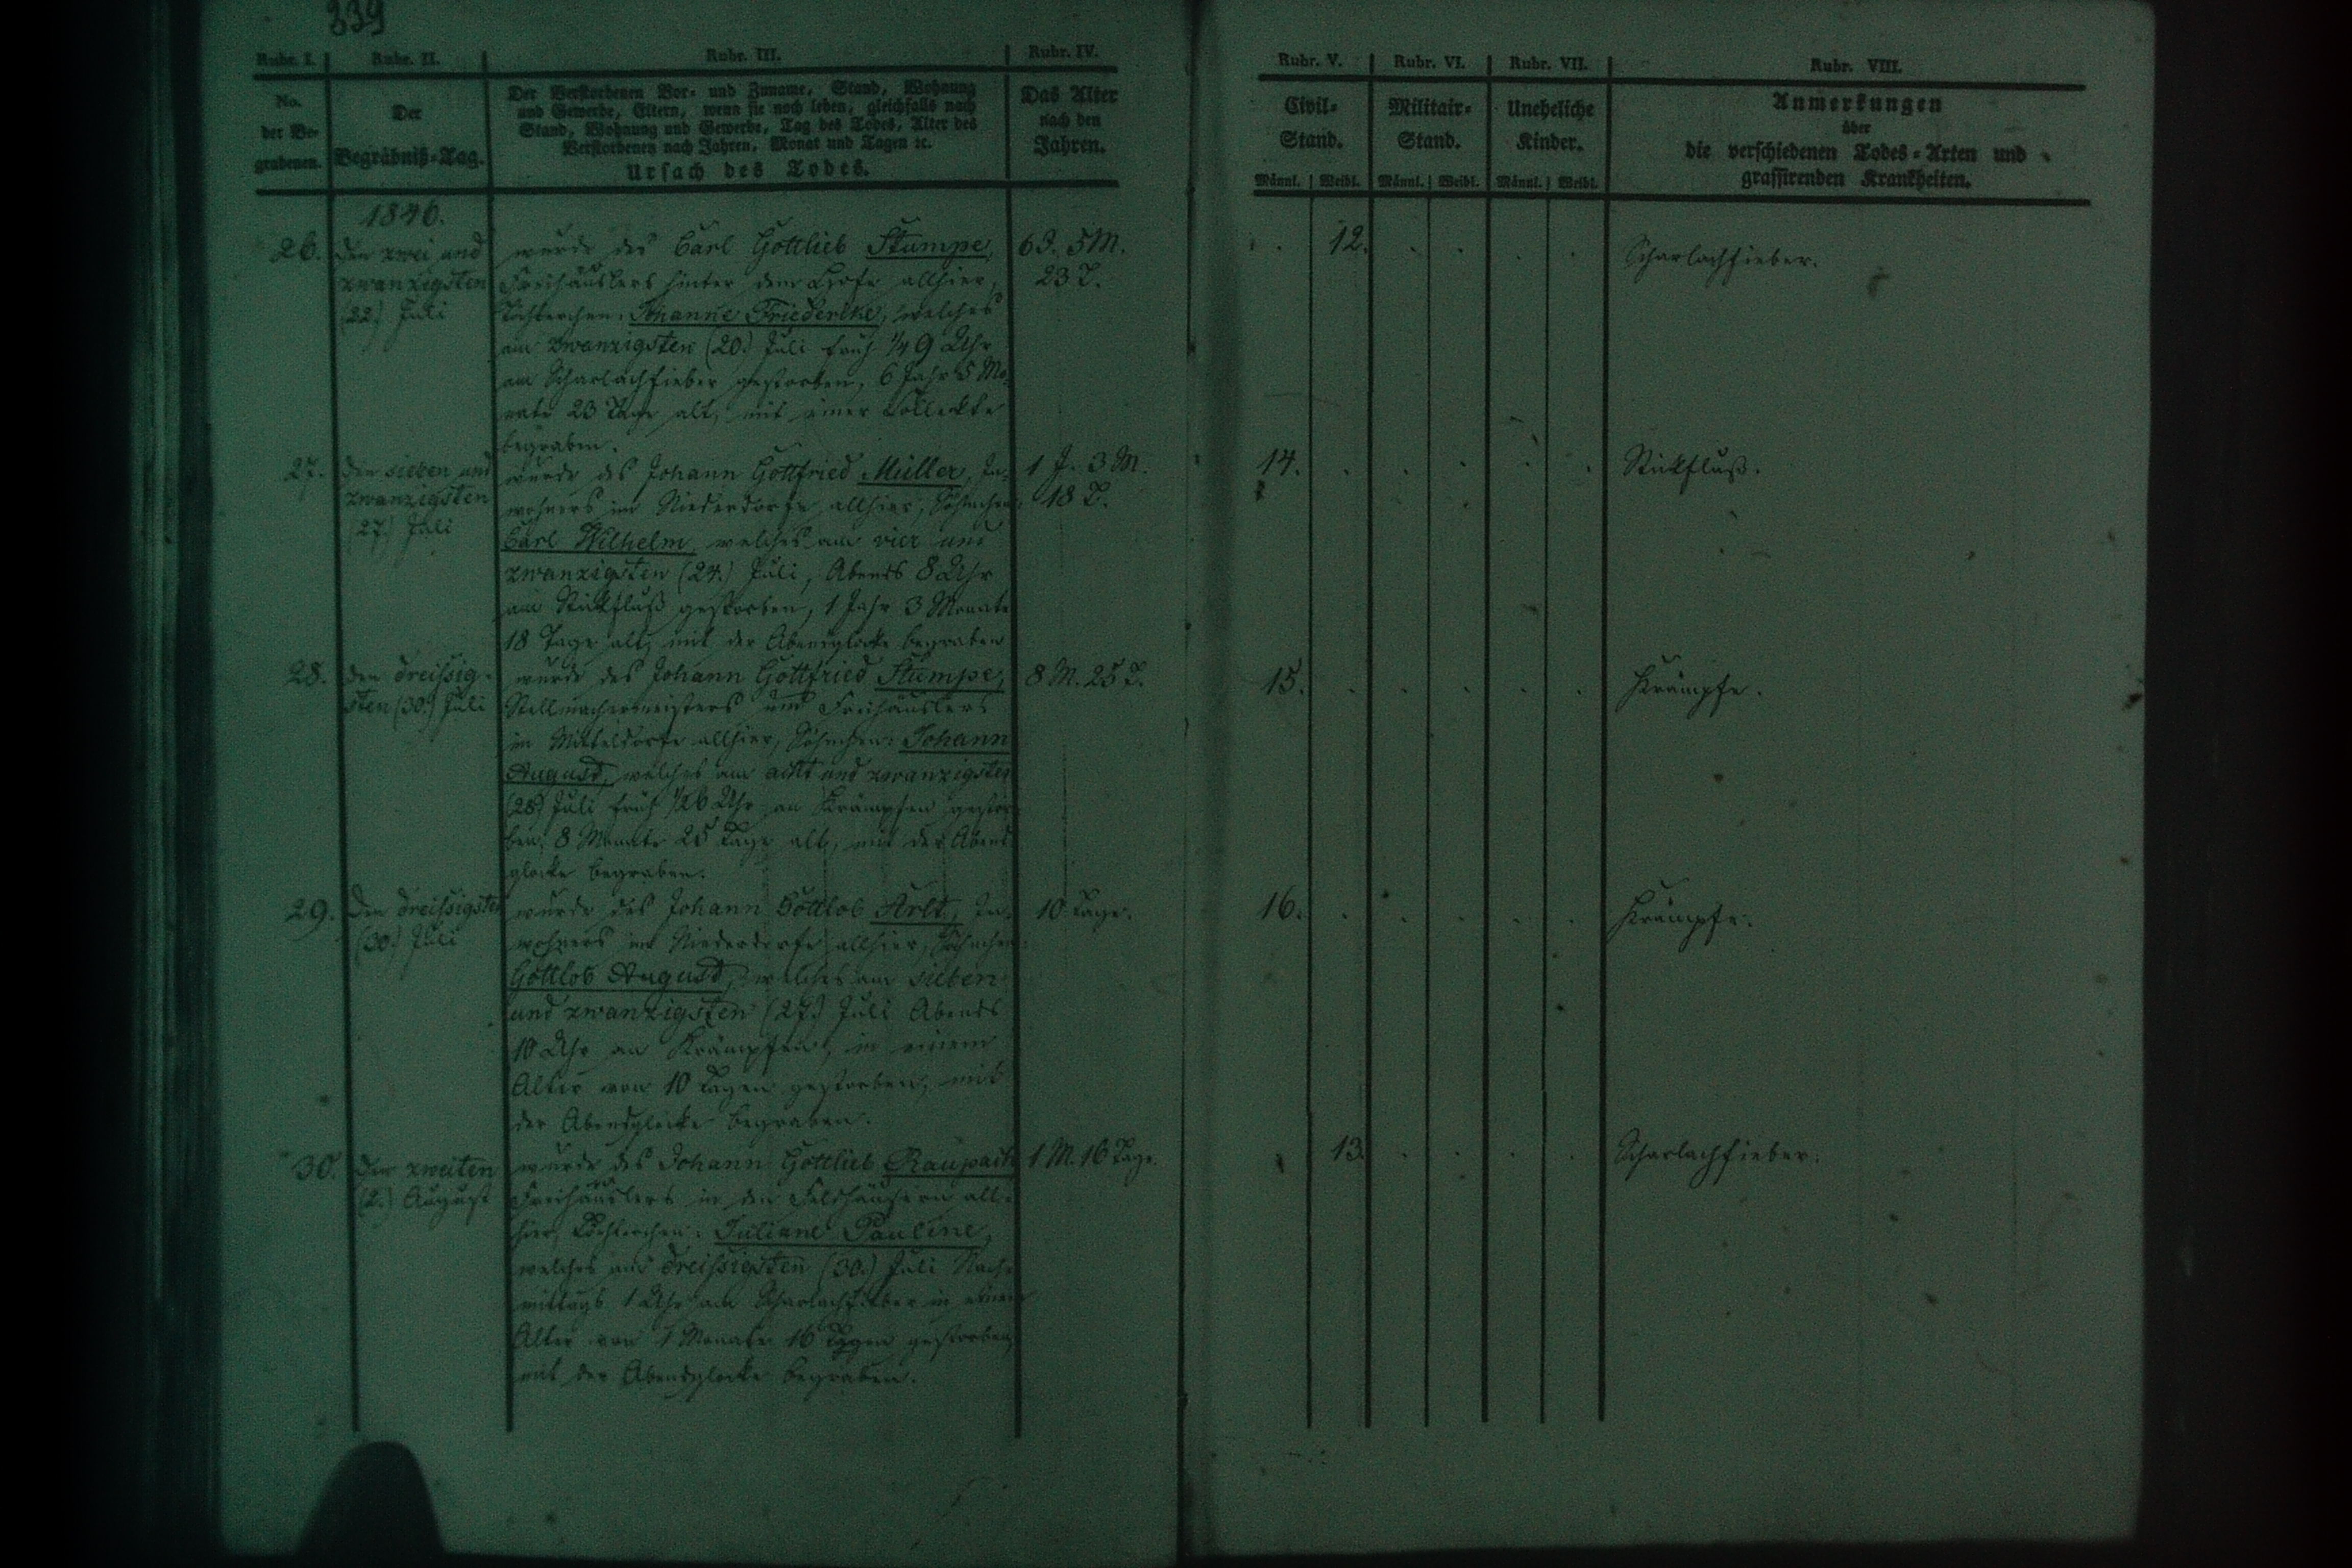 239
Rubr. I. Rubr. II. Rubr. III. Rubr. IV.
No.
der Be-
grabenen.
Der
Begräbniß-Tag.
Der Verstorbenen Vor- und Zuname, Stand, Wohnung
und Gewerbe, Eltern, wenn sie noch leben, gleichfalls nach
Stand, Wohnung und Gewerbe, Tag des Todes, Alter des
Verstorbenen nach Jahren, Monat und Tagen ꝛc.
Ursach des Todes.
Das Alter
nach den
Jahren.
1846.
26.
den zwei und
zwanzigsten
(22.) Juli
wurde des Carl Gottlieb Stumpe,
Freihäuslers hinter dem Hofe allhier,
Töchterchen: Johanne Friederike, welches
am zwanzigsten (20.) Juli früh 1/4 9 Uhr
am Scharlachfieber gestorben, 6 Jahr 5 Mo-
nate 23 Tage alt, mit einer Collekte
begraben.
6 J. 5 M.
23 T.
27.
den sieben und
zwanzigsten
(27.) Juli
wurde des Johann Gottfried Müller, In-
wohners im Niederdorfe allhier, Söhnchen:
Carl Wilhelm, welches am vier und
zwanzigsten (24.) Juli, Abends 8 Uhr
am Stickfluß gestorben, 1 Jahr 3 Monate
18 Tage alt, mit der Abendglocke begraben
1 J. 3 M.
18 T.
28.
den dreissig-
sten (30.) Juli
wurde des Johann Gottfried Stumpe,
Stellmachermeisters und Freihäuslers
im Mitteldorfe allhier, Söhnchen: Johann
August, welches am acht und zwanzigsten
(28.) Juli früh 1/2 6 Uhr an Krämpfen gestor-
ben, 8 Monate 25 Tage alt, mit der Abend-
glocke begraben.
8 M. 25 T.
29.
den dreissigsten
(30.) Juli
wurde des Johann Gottlob Arlt, In-
wohners im Niederdorfe allhier, Söhnchen:
Gottlob August, welches am sieben
und zwanzigsten (27.) Juli Abends
10 Uhr an Krämpfen, in einem
Alter von 10 Tagen gestorben, mit
der Abendglocke begraben.
10 Tage.
30.
den zweiten
(2.) August
wurde des Johann Gottlieb Raupach
Freihäuslers in den Feldhäusern all-
hier, Töchterchen: Juliane Pauline,
welches am dreissigsten (30.) Juli Nach-
mittags 1 Uhr am Scharlachfieber in einem
Alter von 1 Monate 16 Tagen gestorben,
mit der Abendglocke begraben.
1 M. 16 Tage.
Rubr. V. Rubr. VI. Rubr. VII. Rubr. VIII.
Civil-
Stand.
Militair-
Stand.
Uneheliche
Kinder.
Anmerkungen
über
die verschiedenen Todes-Arten und
grassirenden Krankheiten.
Männl. Weibl. Männl. Weibl. Männl. Weibl.
12. Scharlachfieber.
14. Stickfluß.
15. Krämpfe.
16. Krämpfe.
13. Scharlachfieber.